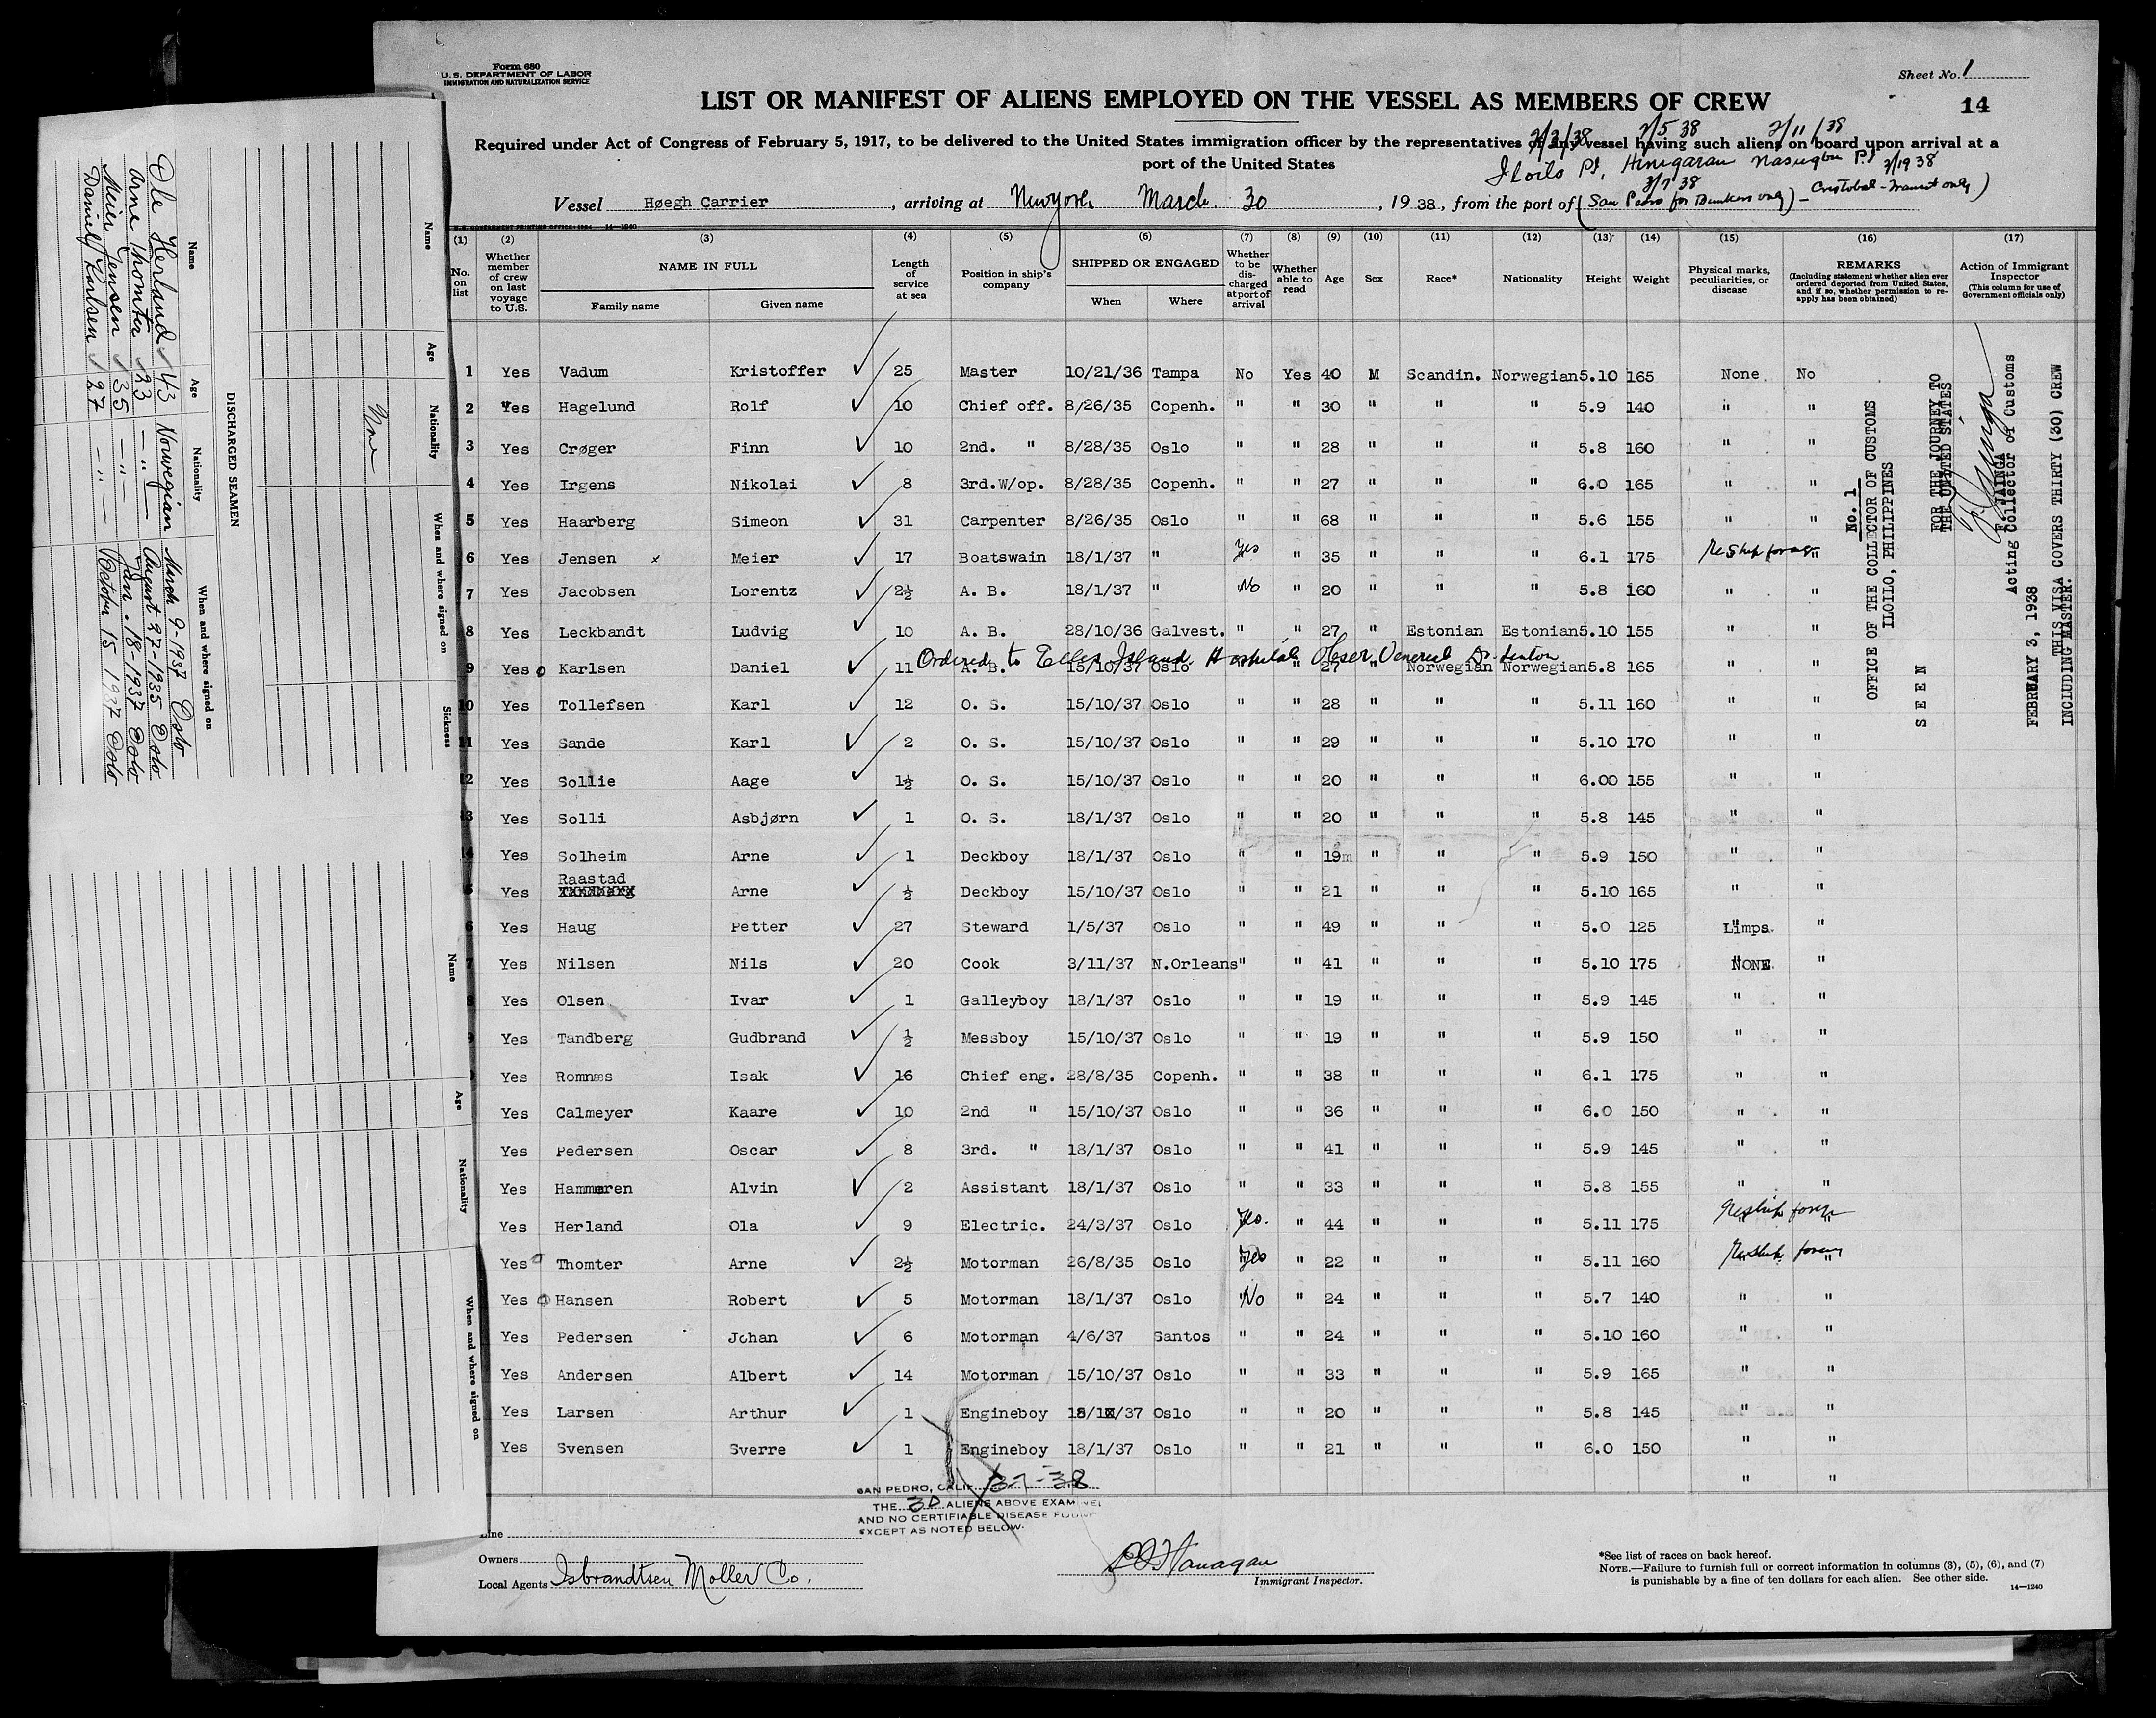 Form 680
U. S. DEPARTMENT OF LABOR
IMMIGRATION AND NATURALIZATION SERVICE
Sheet No. 1
14
LIST OR MANIFEST OF ALIENS EMPLOYED ON THE VESSEL AS MEMBERS OF CREW
Required under Act of Congress of February 5, 1917, to be delivered to the United States immigration officer by the representatives of any vessel having such aliens on board upon arrival at a
port of the United States
2/3/38 2/5 38 2/11/38
Iloilo PI, Hinigaran Nasugbu P.I 3/19 38
3/7 38
Vessel Høegh Carrier, arriving at Newyork March. 30, 1938, from the port of (San Pedro for Bunkers only) - Cristobal - Transit only)
(1) (2) (3) (4) (5) (6) (7) (8) (9) (10) (11) (12) (13) (14) (15) (16) (17)
No. on list
Whether member of crew on last voyage to U.S.
NAME IN FULL
Family name Given name
Length of service at sea
Position in ship's company
SHIPPED OR ENGAGED
When Where
Whether to be discharged at port of arrival
Whether able to read
Age
Sex
Race*
Nationality
Height
Weight
Physical marks, peculiarities, or disease
REMARKS
(Including statement whether alien ever ordered deported from United States, and if so, whether permission to reapply has been obtained)
Action of Immigrant Inspector
(This column for use of Government officials only)
1 Yes Vadum Kristoffer 25 Master 10/21/36 Tampa No Yes 40 M Scandin. Norwegian 5.10 165 None No
2 Yes Hagelund Rolf 10 Chief off. 8/26/35 Copenh. " " 30 " " " 5.9 140 " "
3 Yes Crøger Finn 10 2nd. " 8/28/35 Oslo " " 28 " " " 5.8 160 " "
4 Yes Irgens Nikolai 8 3rd.W/op. 8/28/35 Copenh. " " 27 " " " 6.0 165 " "
5 Yes Haarberg Simeon 31 Carpenter 8/26/35 Oslo " " 68 " " " 5.6 155 " "
6 Yes Jensen x Meier 17 Boatswain 18/1/37 " Yes " 35 " " " 6.1 175
7 Yes Jacobsen Lorentz 2½ A. B. 18/1/37 " No " 20 " " " 5.8 160 " "
8 Yes Leckbandt Ludvig 10 A. B. 28/10/36 Galvest. " " 27 " Estonian Estonian 5.10 155 " "
Ordered to Ellis Island Hospital Obser. Venereal Dr.
9 Yes Karlsen Daniel 11 A. B. 15/10/37 Oslo " 27 " Norwegian Norwegian 5.8 165 " "
10 Yes Tollefsen Karl 12 O. S. 15/10/37 Oslo " " 28 " " " 5.11 160 " "
11 Yes Sande Karl 2 O. S. 15/10/37 Oslo " " 29 " " " 5.10 170 " "
12 Yes Sollie Aage 1½ O. S. 15/10/37 Oslo " " 20 " " " 6.00 155 " "
13 Yes Solli Asbjørn 1 O. S. 18/1/37 Oslo " " 20 " " " 5.8 145 " "
14 Yes Solheim Arne 1 Deckboy 18/1/37 Oslo " " 19m " " " 5.9 150 " "
5 Yes Raastad Arne ½ Deckboy 15/10/37 Oslo " " 21 " " " 5.10 165 " "
6 Yes Haug Petter 27 Steward 1/5/37 Oslo " " 49 " " " 5.0 125 Limps. "
7 Yes Nilsen Nils 20 Cook 3/11/37 N.Orleans " " 41 " " " 5.10 175 NONE "
8 Yes Olsen Ivar 1 Galleyboy 18/1/37 Oslo " " 19 " " " 5.9 145 " "
9 Yes Tandberg Gudbrand ½ Messboy 15/10/37 Oslo " " 19 " " " 5.9 150 " "
Yes Romnæs Isak 16 Chief eng. 28/8/35 Copenh. " " 38 " " " 6.1 175 " "
Yes Calmeyer Kaare 10 2nd " 15/10/37 Oslo " " 36 " " " 6.0 150 " "
Yes Pedersen Oscar 8 3rd. " 18/1/37 Oslo " " 41 " " " 5.9 145 " "
Yes Hammeren Alvin 2 Assistant 18/1/37 Oslo " " 33 " " " 5.8 155 " "
Yes Herland Ola 9 Electric. 24/3/37 Oslo Yes. " 44 " " " 5.11 175 Reship foreign
Yes Thomter Arne 2½ Motorman 26/8/35 Oslo Yes " 22 " " " 5.11 160 Reship foreign
Yes Hansen Robert 5 Motorman 18/1/37 Oslo No " 24 " " " 5.7 140 " "
Yes Pedersen Johan 6 Motorman 4/6/37 Santos " " 24 " " " 5.10 160 " "
Yes Andersen Albert 14 Motorman 15/10/37 Oslo " " 33 " " " 5.9 165 " "
Yes Larsen Arthur 1 Engineboy 18/1/37 Oslo " " 20 " " " 5.8 145 " "
Yes Svensen Sverre 1 Engineboy 18/1/37 Oslo " " 21 " " " 6.0 150 " "
" "
No. 1
OFFICE OF THE COLLECTOR OF CUSTOMS
ILOILO, PHILIPPINES
S E E N
FOR THE JOURNEY TO
THE UNITED STATES
F. JAINGA
Acting Collector of Customs
FEBRUARY 3, 1938
THIS VISA COVERS THIRTY (30) CREW
INCLUDING MASTER.
SAN PEDRO, CALIF. 3-7-38
THE 30 ALIENS ABOVE EXAMINED
AND NO CERTIFIABLE DISEASE FOUND
EXCEPT AS NOTED BELOW.
Line
Owners
Local Agents Isbrandtsen Moller Co.
Flanagan
Immigrant Inspector.
*See list of races on back hereof.
NOTE.—Failure to furnish full or correct information in columns (3), (5), (6), and (7)
is punishable by a fine of ten dollars for each alien. See other side.
14—1240
DISCHARGED SEAMEN
Name Age Nationality When and where signed on
Ole Herland 43 Norwegian March 9-1937 Oslo
Arne Thomter 23 — " — August 27-1935 Oslo
Meier Jensen 35 — " — Jan. 18-1937 Oslo
Daniel Karlsen 27 — " — October 15 1937 Oslo
Name Age Nationality When and where signed on Sickness
None
Name Age Nationality When and where signed on